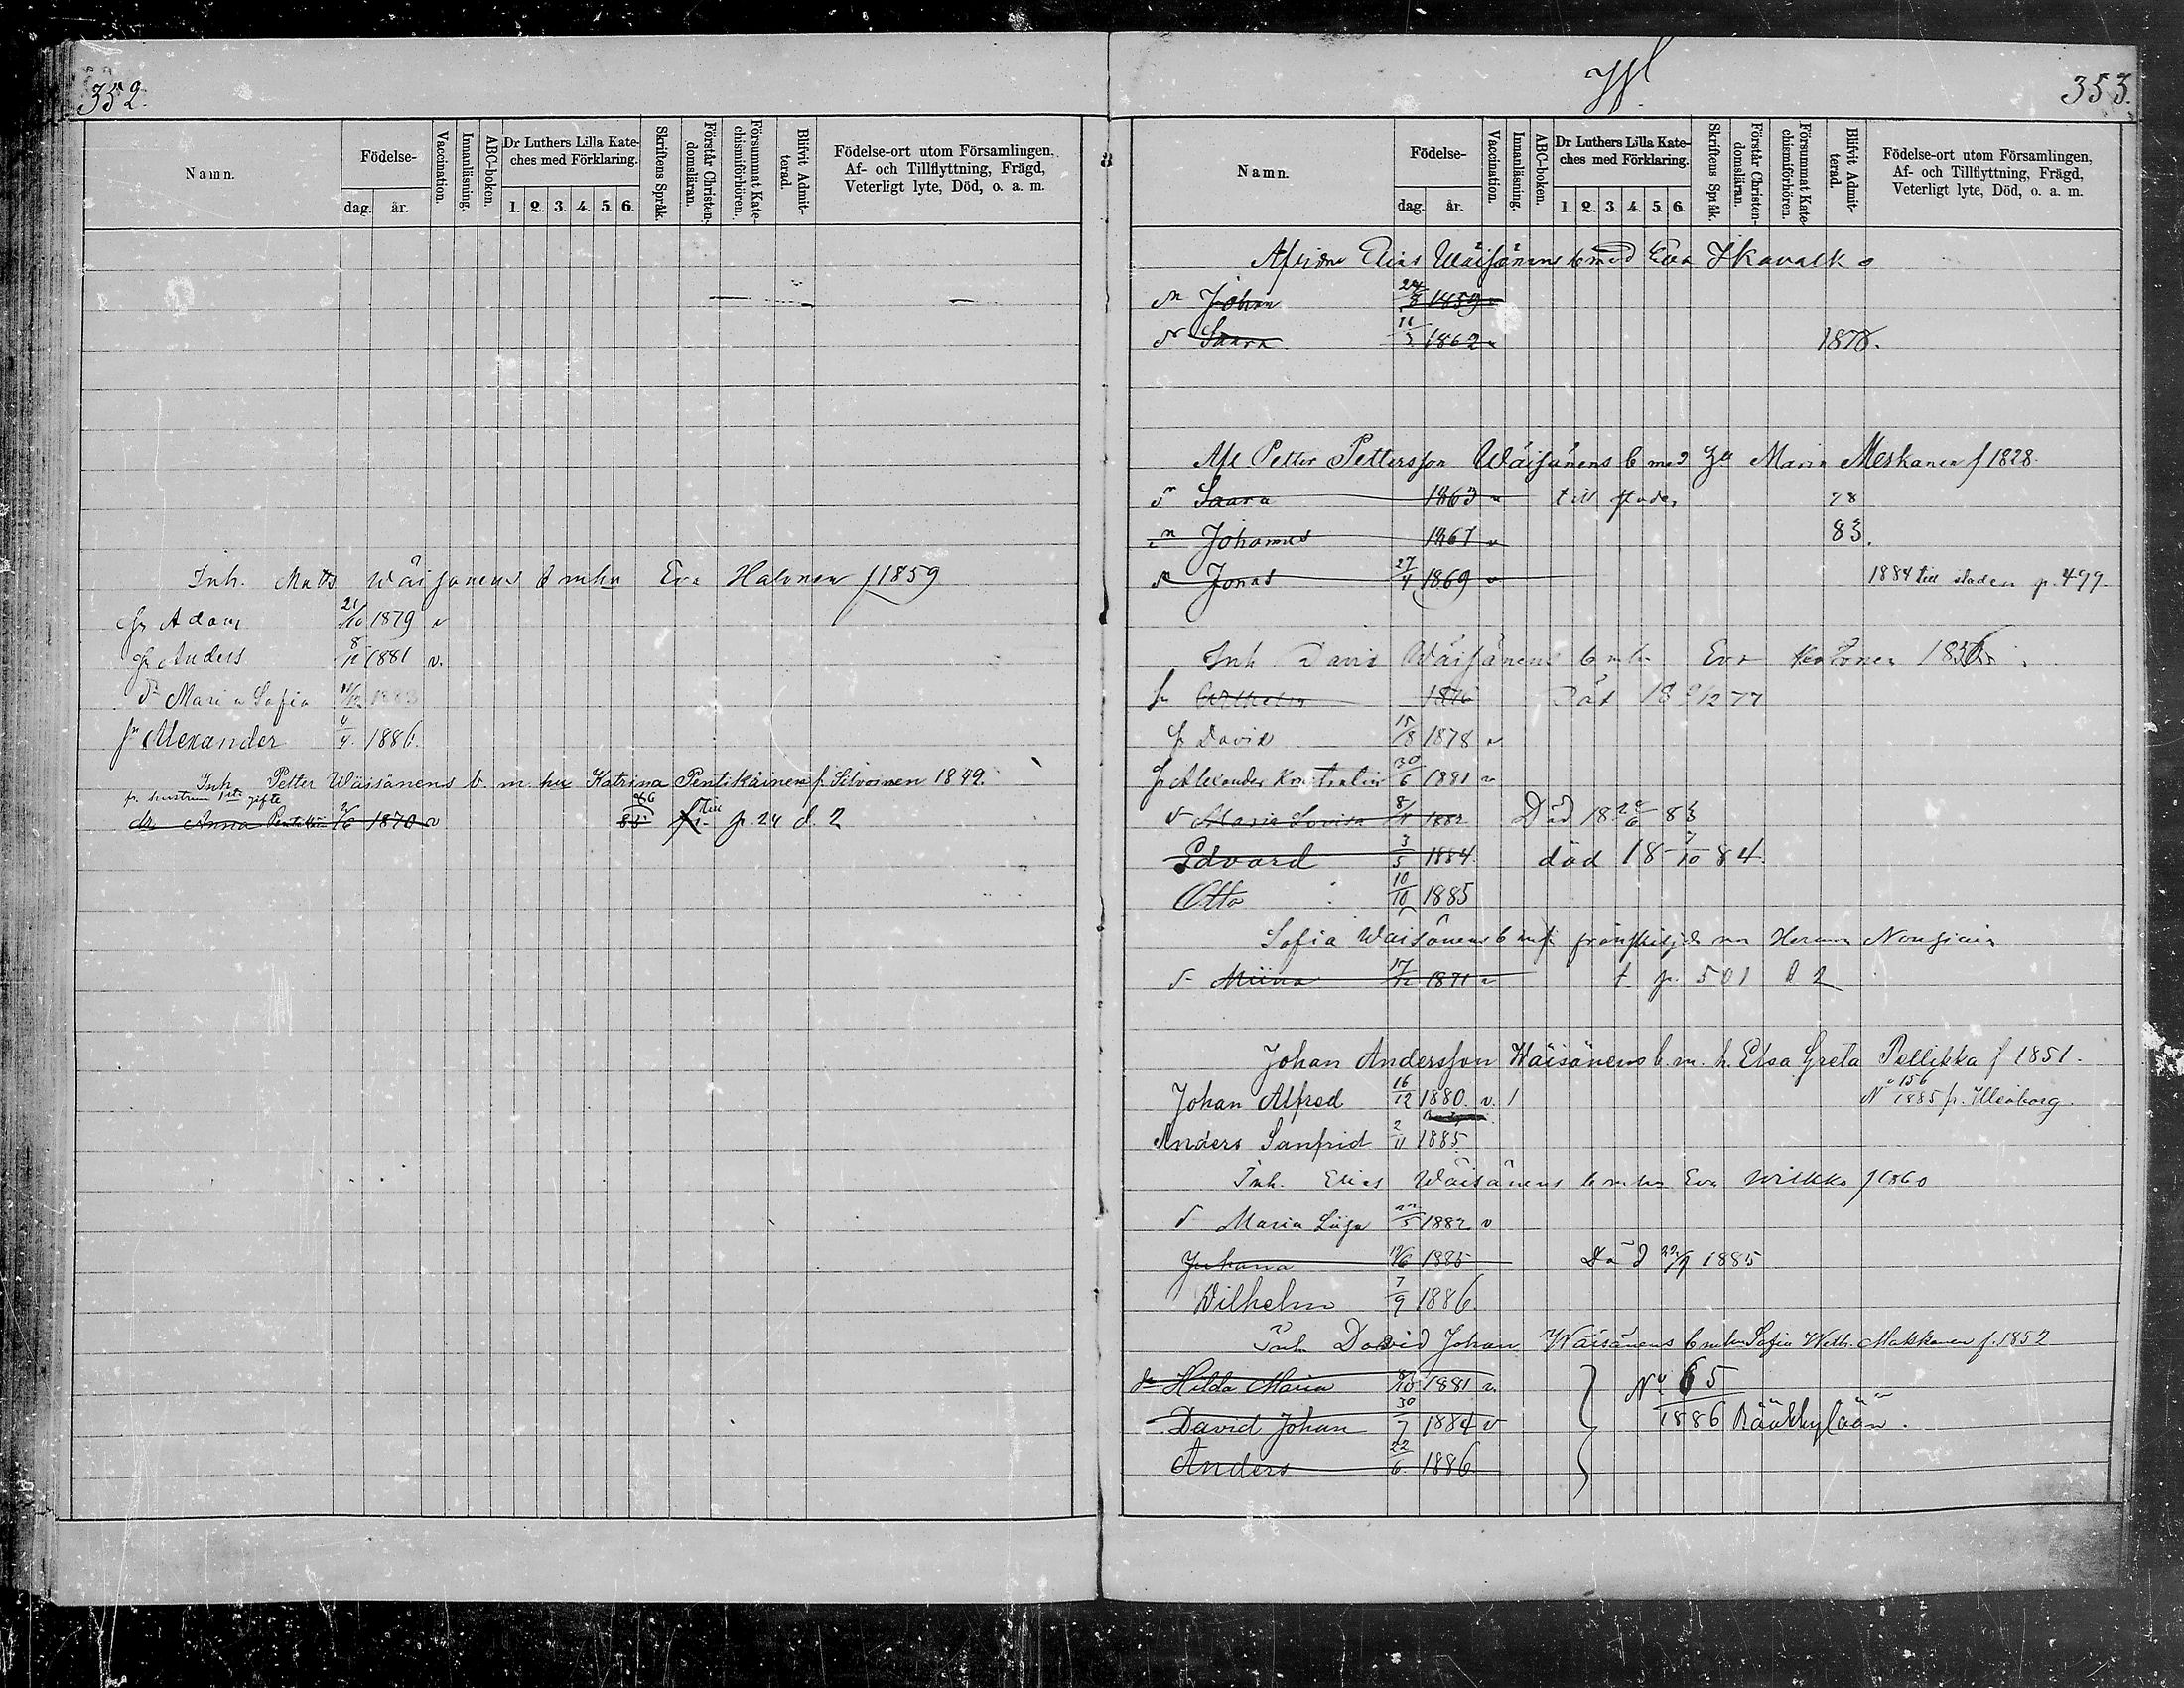 352.
Namn.
Födelse-
dag. år.
Vaccination.
Innanläsning.
ABC-boken.
Dr Luthers Lilla Kate-
ches med Förklaring.
1. 2. 3. 4. 5. 6.
Skriftens Språk.
Förstår Christen-
domsläran.
Försummat Kate-
chismiförhören.
Blifvit Admit-
terad.
Födelse-ort utom Församlingen,
Af- och Tillflyttning, Frägd,
Veterligt lyte, Död, o. a. m.
Inh. Matts Wäisänens b m hu Eva Halonen f 1859
Adam 21/10 1879 v
Anders 8/12 1881 v.
Maria Sofia 1883
Alexander 4/4. 1886.
Inh. Petter Wäisänens b. m. hu Katrina Pentikäinen f. Silvoinen 1849.
fr. hustruns 1sta gifte 86
dr Anna 2/6 1870 v 85 till p 24 d. 2
Hfl
353.
Namn.
Födelse-
dag. år.
Vaccination.
Innanläsning.
ABC-boken.
Dr Luthers Lilla Kate-
ches med Förklaring.
1. 2. 3. 4. 5. 6.
Skriftens Språk.
Förstår Christen-
domsläran.
Försummat Kate-
chismiförhören.
Blifvit Admit-
terad.
Födelse-ort utom Församlingen,
Af- och Tillflyttning, Frägd,
Veterligt lyte, Död, o. a. m.
Elias Wäisänens b med Eva
Johan 24/3 1859 v
Saara 11/3 1862 v 1878.
Afl Petter Pettersson Wäisänens b med Maria Meskanen f 1828.
Saara 1863 v till staden 78
Johannes 1867 v 83.
Jonas 27/4 1869 v 1884 till staden p. 499.
Inh David Wäisänens b m h Eva 1856
Wilhelm 1876 Död 18 9/12 77
David 15/8 1878 v
Alexander Konstantin 30/6 1881 v
Maria Lovisa 1882 Död 18 6 83
Edvard 3/5 1884. död 18 7/10 84.
Otto 10/10 1885
Sofia Wäisänens b m Herman
Miina 17/12 1871 v t p. 501 d 2
Johan Andersson Wäisänens b. m. h. Elsa Greta Pellikka f 1851.
Johan Alfred 16/12 1880. v. 1 No 156 1885 fr. Uleåborg.
Anders Sanfrid 2/11 1885
Inh. Elias Wäisänens b m hu Eva Wilkko f 1860
Maria Liisa 5 1882 v
Juhana 19/6 1885 Död 22/9 1885
Vilhelm 7/9 1886.
Inh David Johan Wäisänens b m hu Sofia Wilh. Makkonen f. 1852
Hilda Maria 8/10 1881 v. No 65
David Johan 30/7 1884 v 1886 Rääkkylään.
Anders 22/6. 1886.